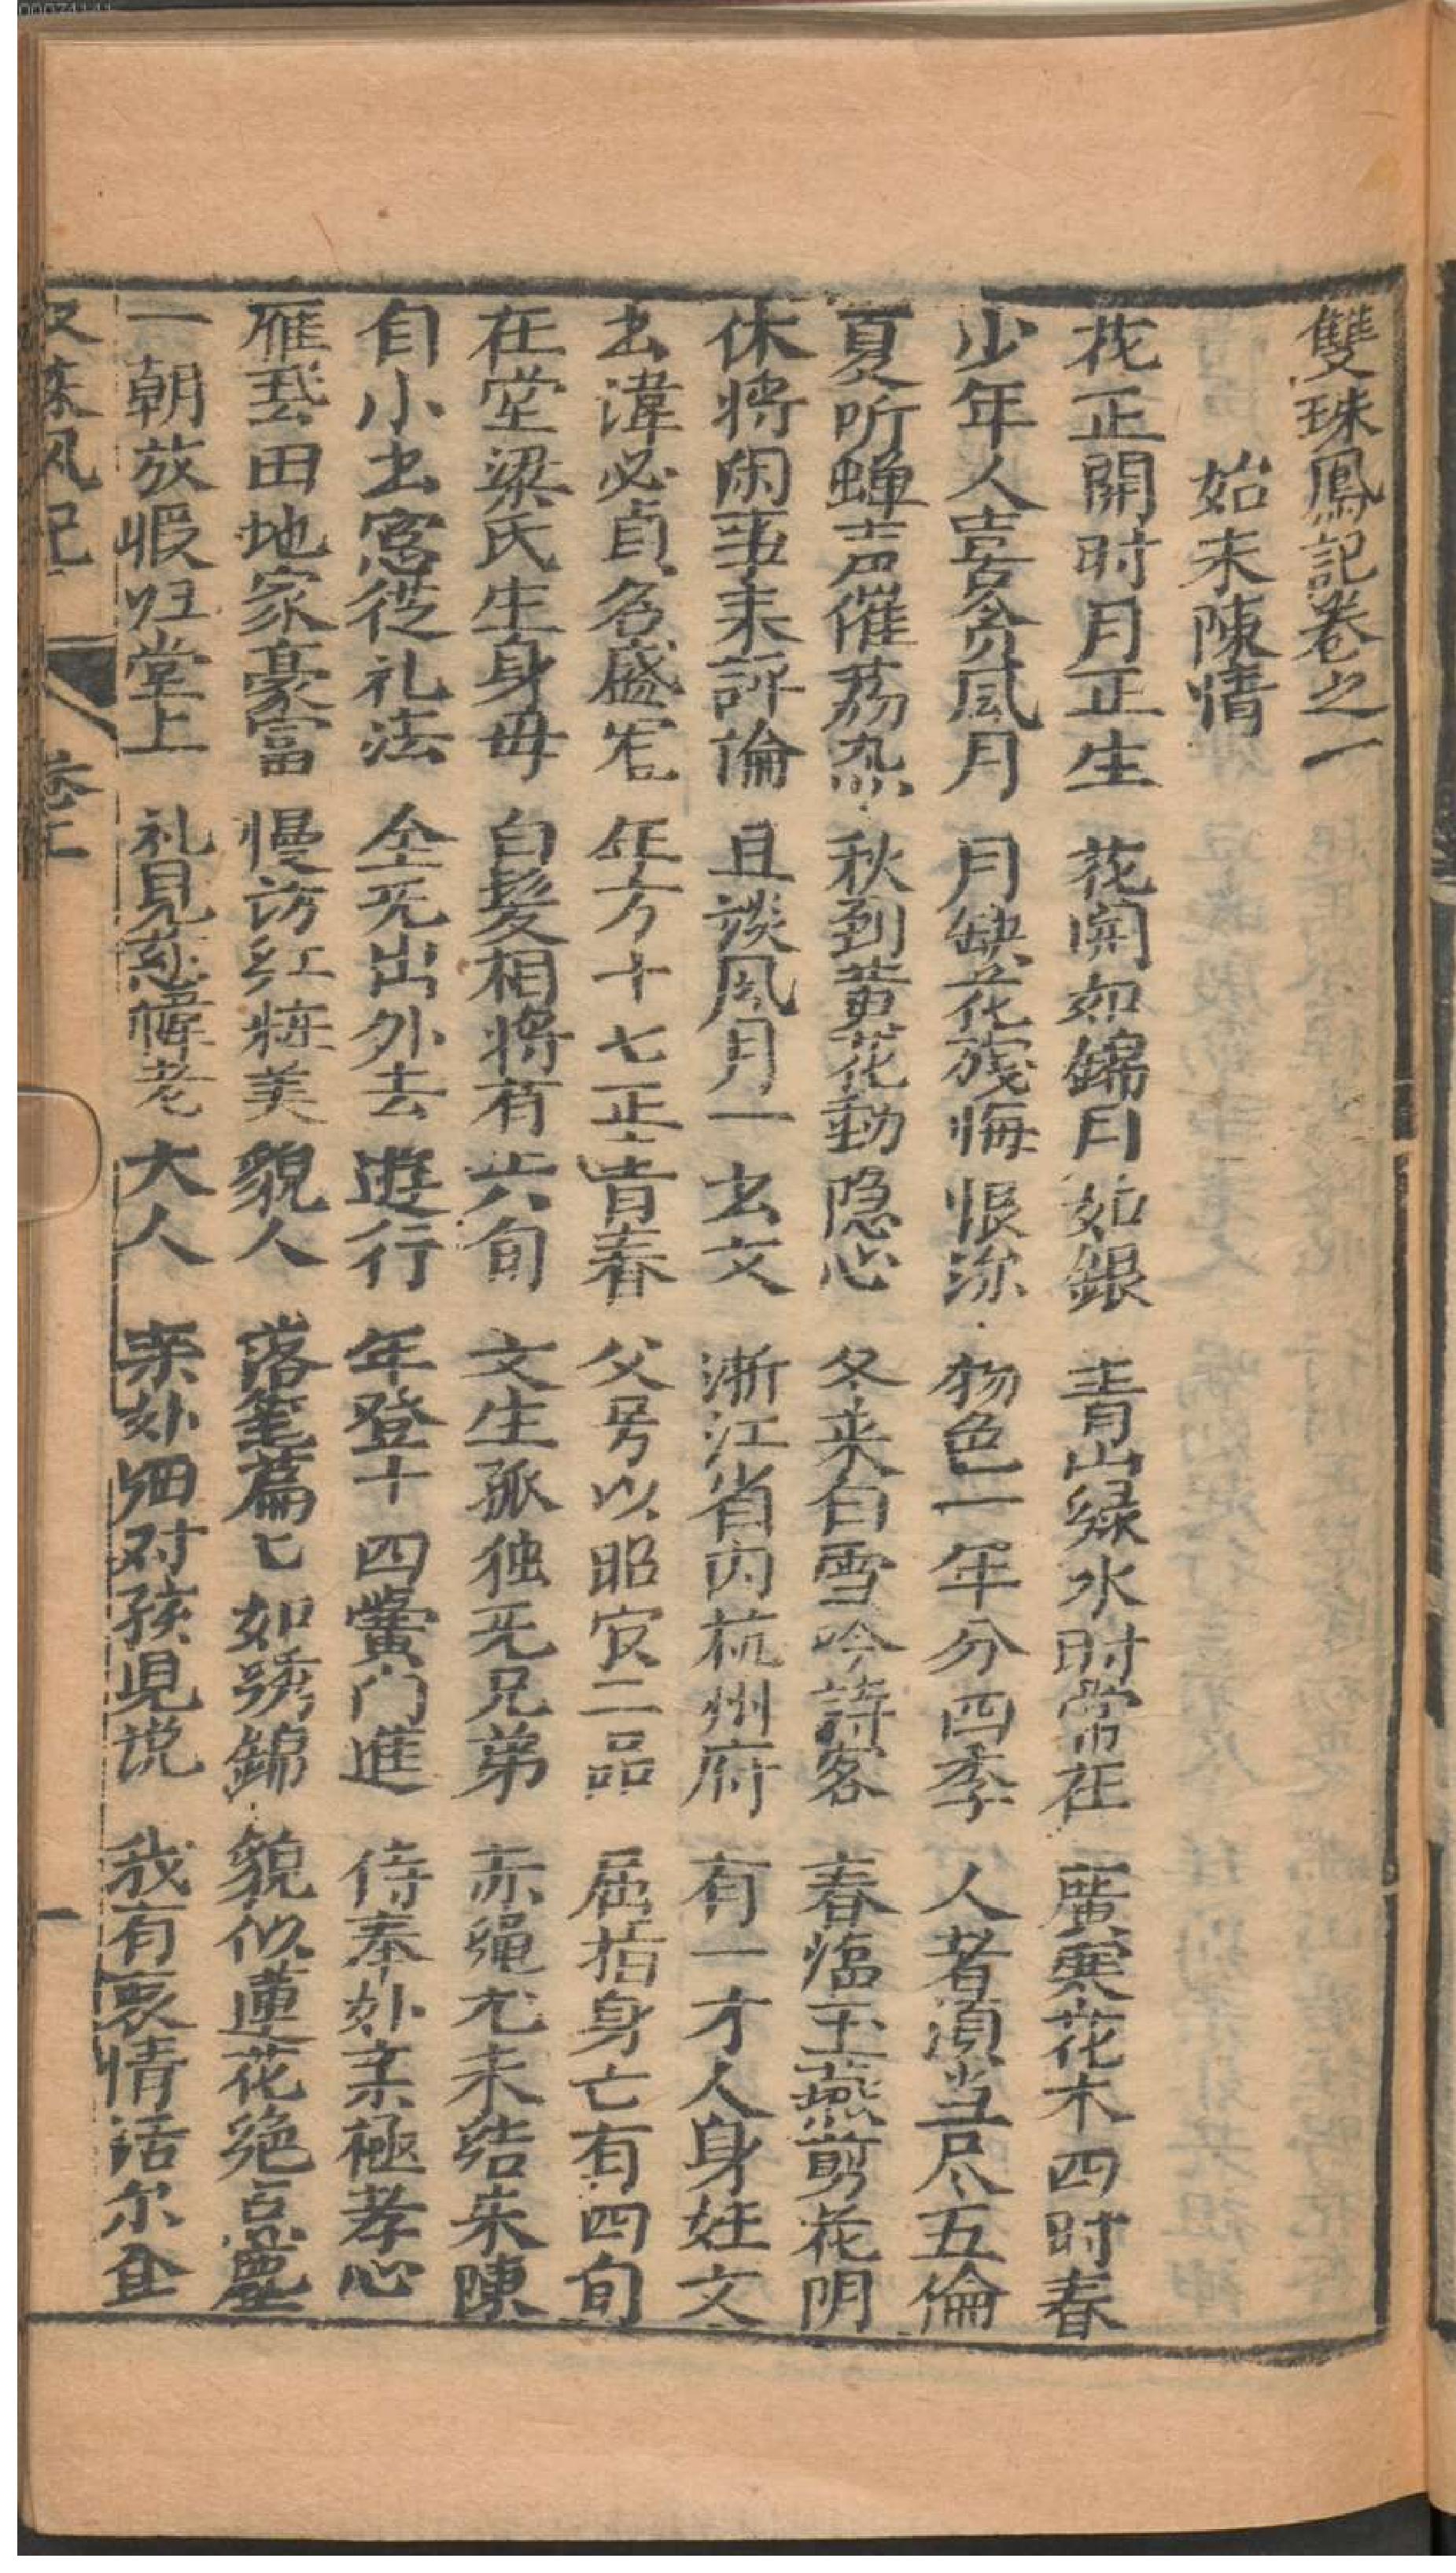 雙珠鳳記卷之一
始末陳情
花正開时月正生 花開如錦月如銀 青山綠水时常在 廣寒花木四时春
少年人喜貪風月 月缺花殘悔恨深 物色一年分四季 人者須当尽五倫
夏听蝉声催荔热 秋到黄花動隐心 冬来白雪吟詩客 春临玉燕剪花阴
休将闲事来評論 且談风月一玄文 浙江省内杭州府 有一才人身姓文
玄諱必貞名盛 年方十七正青春 父号以昭官二品 屈指身亡有四旬
在堂梁氏生身母 白髮相将有六旬 文生孤独无兄弟 赤绳尤未结朱陳
自小玄窓從礼法 全无出外去遊行 年登十四黉门進 侍奉外亲極孝心
田地家豪富 慢訪红粧美貌人 落笔篇七如綉錦 貌似蓮花绝点塵
一朝放假归堂上 礼見慈幃老大人 亲外细对孩児说 我有衷情话尔
双珠凤记 卷上 一